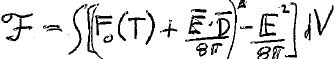 ℱ = ∫[[F₀(T) + (E̅·D̅)/8π]² - E²/8π] dV